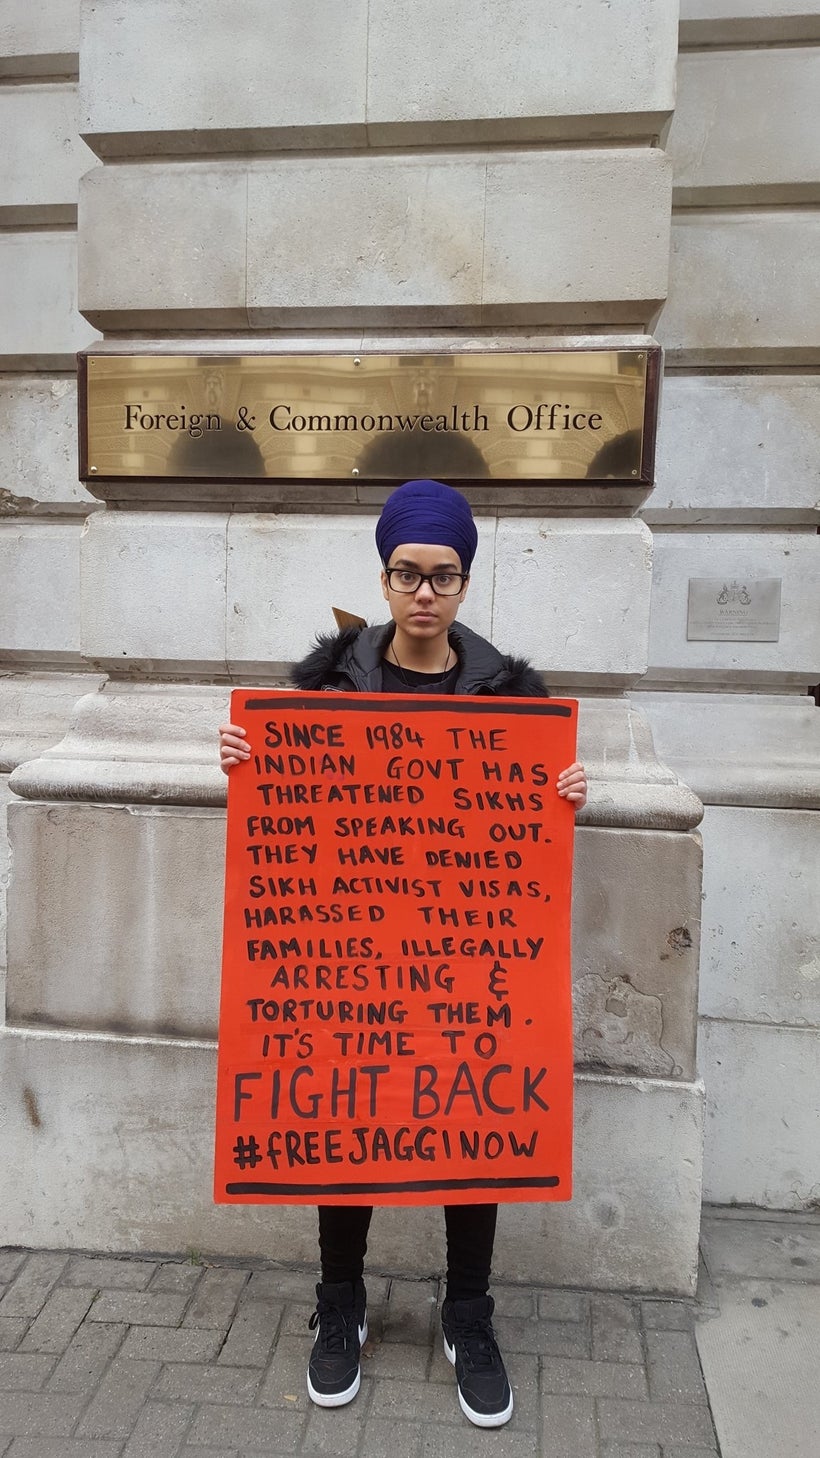 Foreign & Commonwealth Office
WARNING
SINCE 1984 THE
INDIAN GOVT HAS
THREATENED SIKHS
FROM SPEAKING OUT.
THEY HAVE DENIED
SIKH ACTIVIST VISAS,
HARASSED THEIR
FAMILIES, ILLEGALLY
ARRESTING &
TORTURING THEM.
IT'S TIME TO
FIGHT BACK
#FREEJAGGINOW